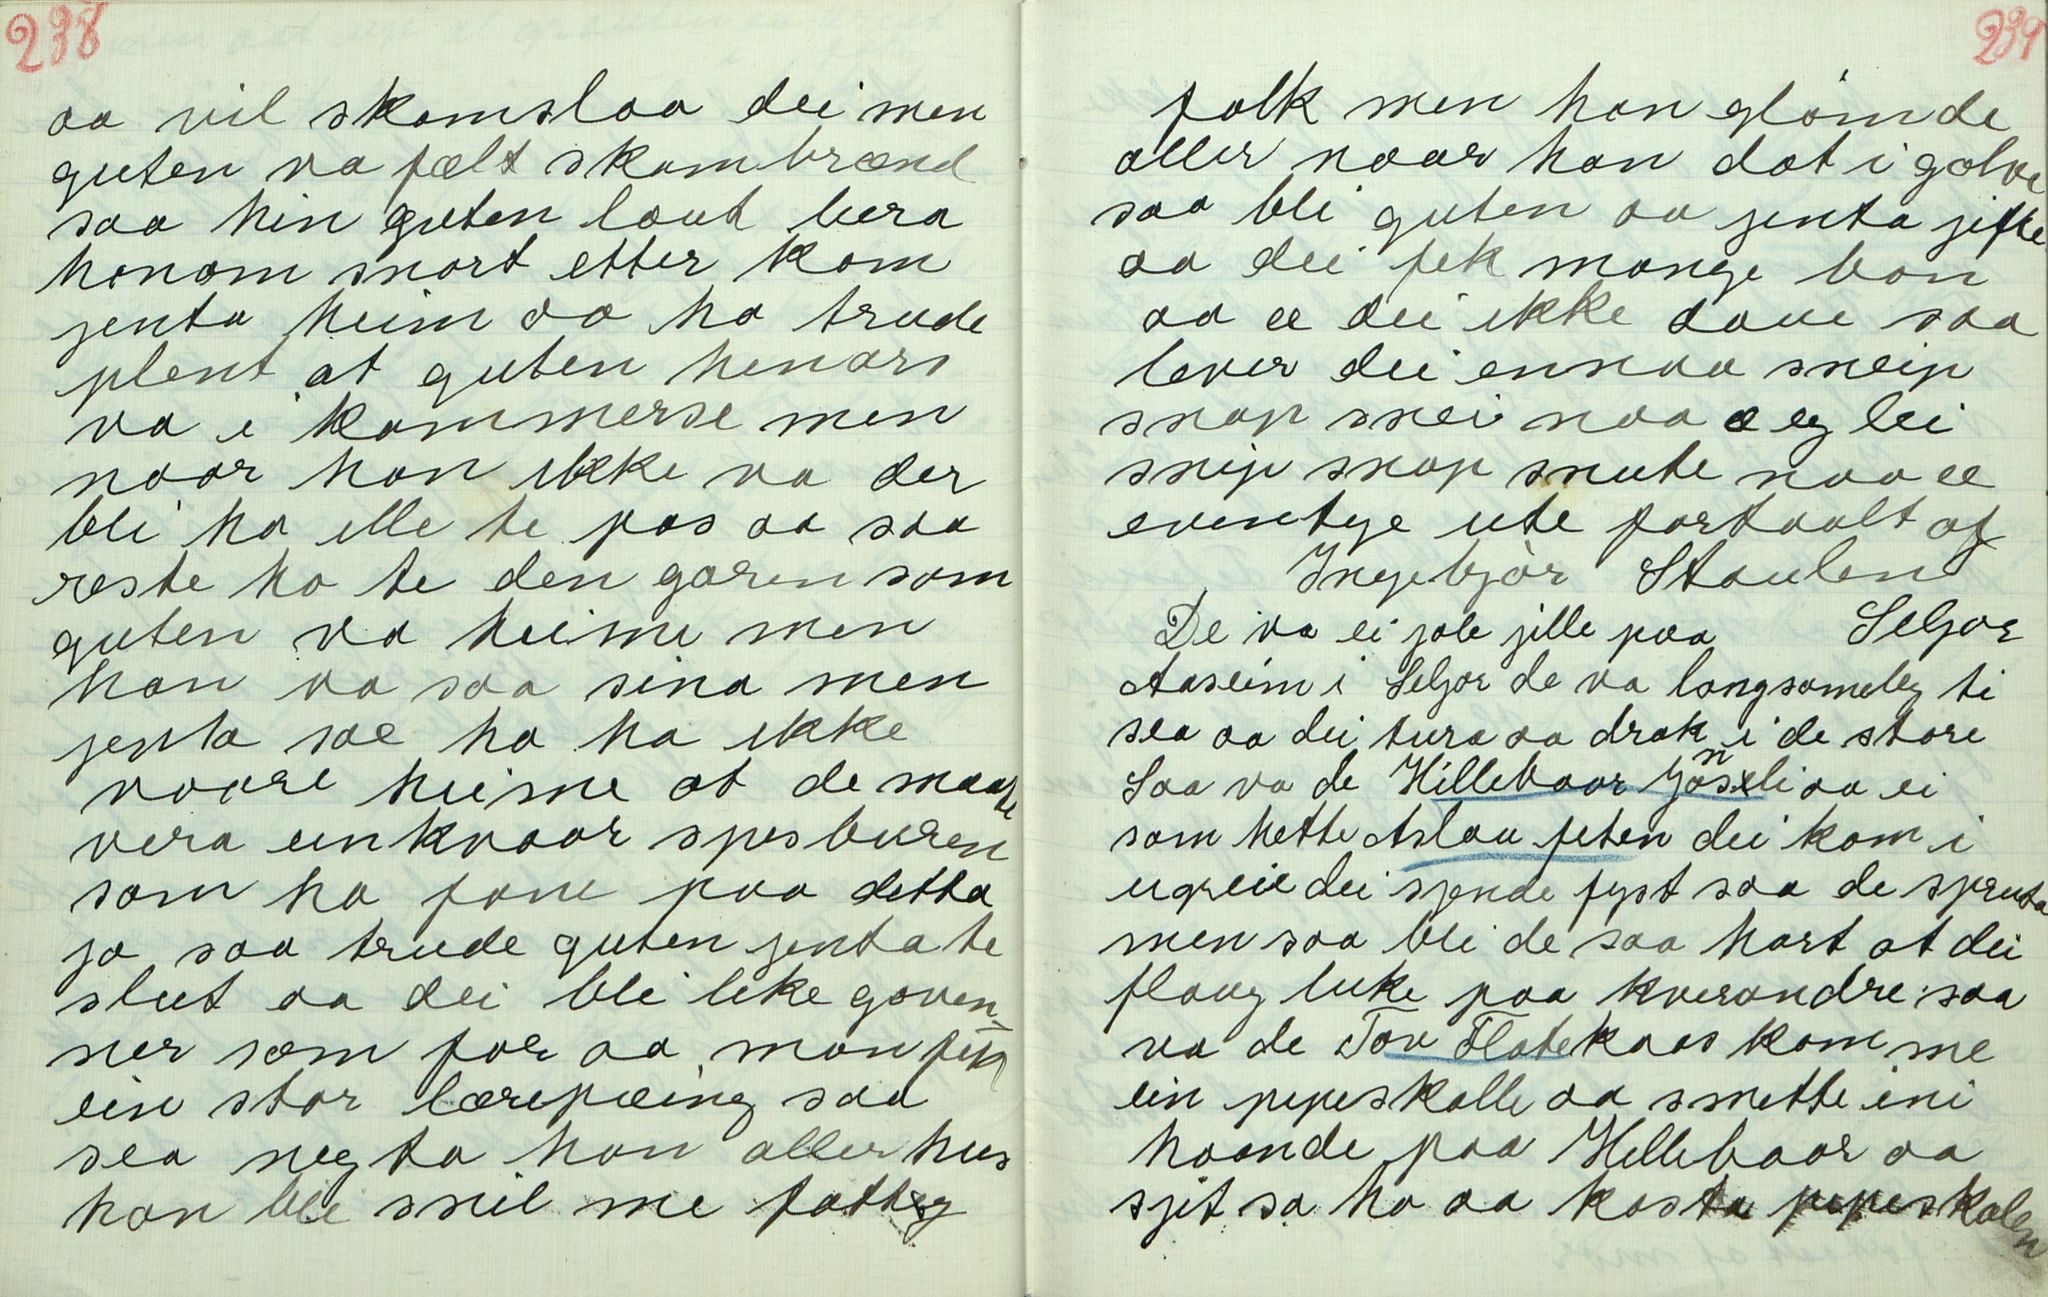 238
aa vil skamslaa dei men
guten va fælt skambrænd
saa hin guten laut bera
honom snart etter kom
jenta heim aa ho trude
plent at guten henars
va i kammerse men
naar han ikke va der
blei ho ille te pas aa saa
reste ho te den garen som
guten va heime men
han va saa sina men
jenta sae ho ha ikke
voore heime at de maatte
vera einkvaar spesburen
som ha fare paa detta
ja saa trude guten jenta te
slut aa dei blei like goven-
ner som før aa man fek
ein stor lærepæing saa
sea negta han aller hus
han blei snil me fattig
239
folk men han glømde
aller naar han dat i golve
saa blei guten aa jenta jifte
aa dei fek mange ban
aa æ dei ikke daue saa
lever dei ennaa sneip
snap snei naa æ eg lei
snip snap snute naa æ
eventye ute fortaalt af
Ingebjør Staulen
Seljor
De va ei jole jille paa
Aaseim i Seljor de va langsomeleg ti
sea aa dei tura aa drak i de store
Saa va de Hillebaar Jønsli aa ei
som hette Aslau feten dei kom i
ugreie dei sjende fyst saa de spruta
men saa blei de saa hart at dei
flaug luke paa kverandre saa
va de Tov Flatekaas kom me
ein pipeskalle aa smette ini
haande paa Hillebaar aa
sjit sa ho aa kasta pipeskalen